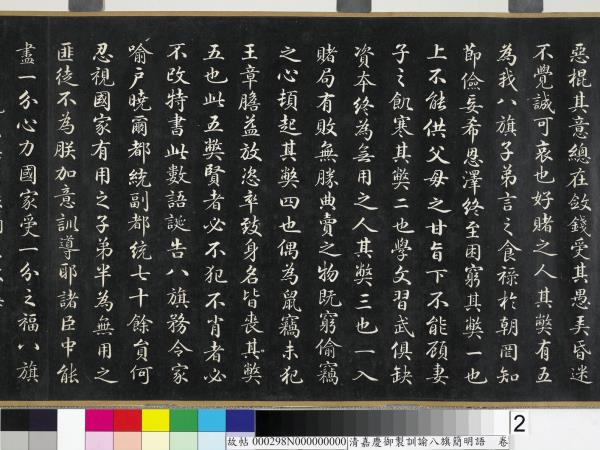 惡棍其意總在斂錢受其愚弄昏迷
不覺誠可哀也好賭之人其弊有五
為我八旗子弟言之食祿於朝罔知
節儉妄希恩澤終至困窮其弊一也
上不能供父母之甘旨下不能顧妻
子之飢寒其弊二也學文習武俱缺
資本終為無用之人其弊三也一入
賭局有敗無勝典賣之物既窮偷竊
之心頓起其弊四也偶為鼠竊未犯
王章膽益放恣卒致身名皆喪其弊
五也此五弊賢者必不犯不肖者必
不改特書此數語誕告八旗務令家
喻戶曉爾都統副都統七十餘員何
忍視國家有用之子弟半為無用之
匪徒不為朕加意訓導耶諸臣中能
盡一分心力國家受一分之福八旗
2
故帖 000298N000000000 清嘉慶御製訓諭八旗簡明語 卷